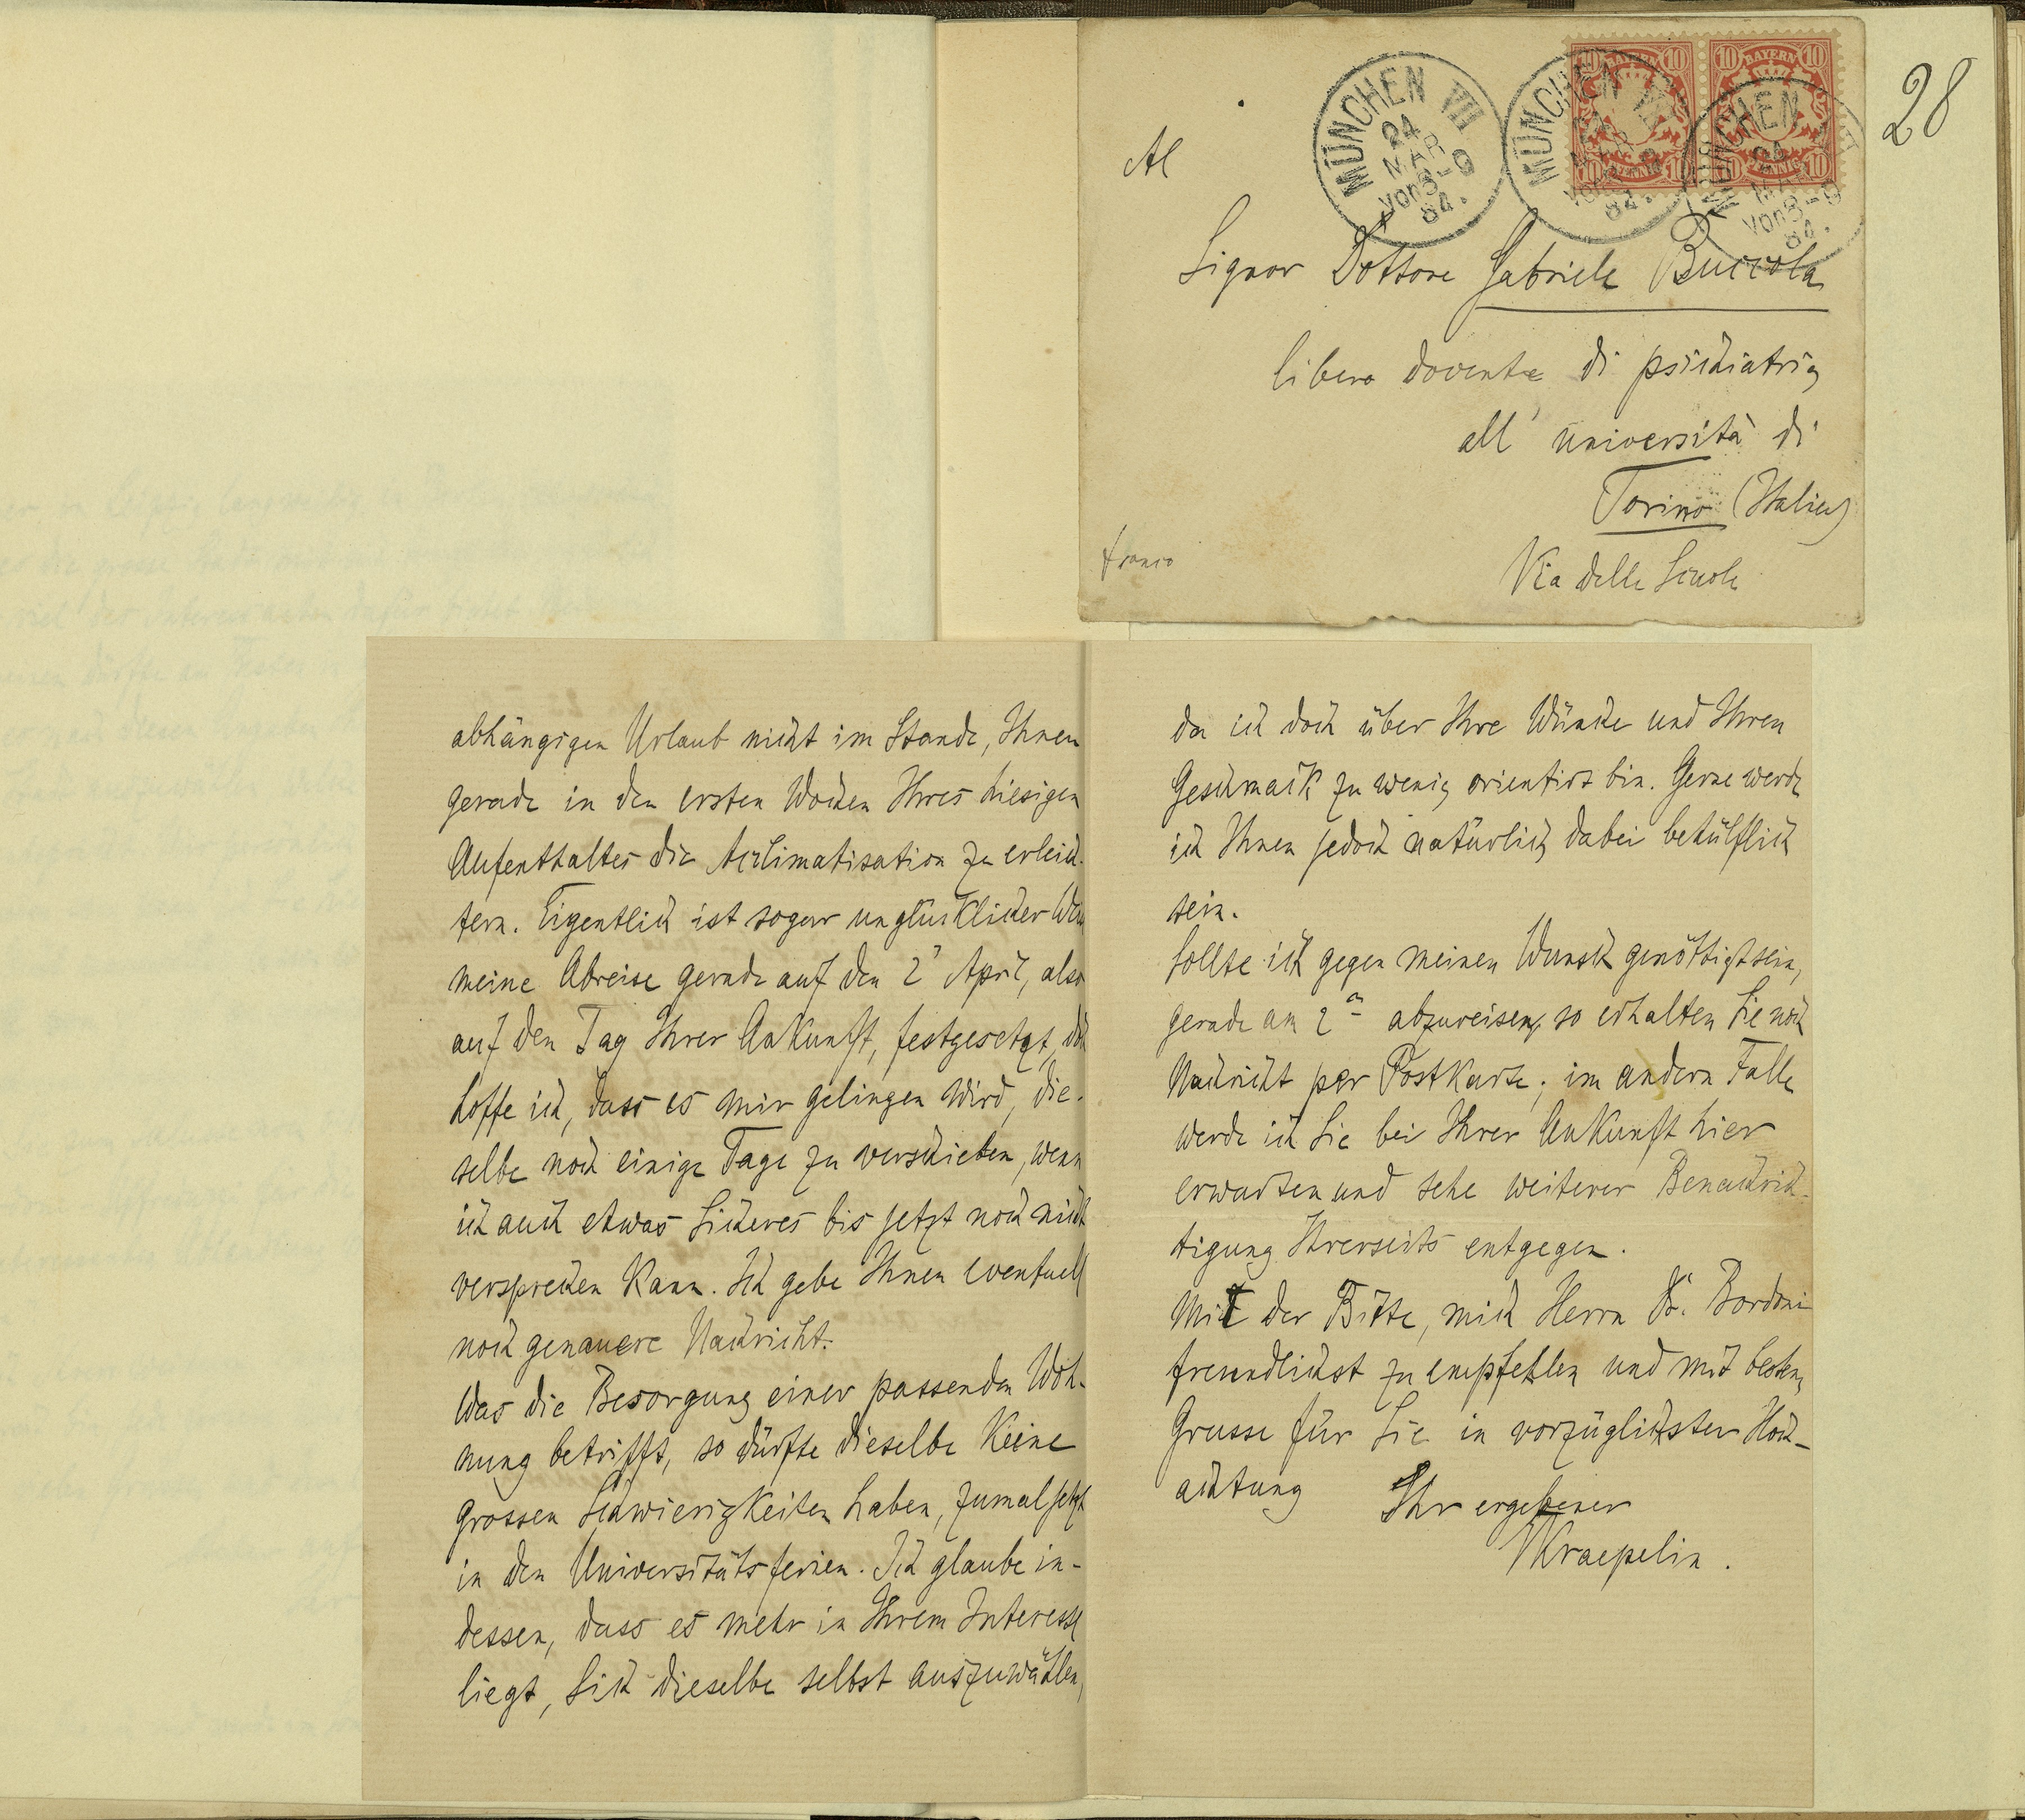 28
MÜNCHEN VII
24
MAR
von 8-9
84.
MÜNCHEN VII
24
MAR
von 8-9
84.
MÜNCHEN
24
MAR
von 8-9
84.
10 BAYERN 10
10 PFENNIG 10
10 BAYERN 10
10 PFENNIG 10
Al
Signor Dottore Gabriele Buccola
libero docente di psichiatria
all' università di
Torino (Italien)
franco
Via delle Scuole
abhängigen Urlaub nicht im Stande, Ihnen
gerade in den ersten Wochen Ihres hiesigen
Aufenthaltes die Acclimatisation zu erleich-
tern. Eigentlich ist sogar unglücklicher Weise
meine Abreise gerade auf den 2' April, also
auf den Tag Ihrer Ankunft, festgesetzt, doch
hoffe ich, dass es mir gelingen wird, die-
selbe noch einige Tage zu verschieben, wenn
ich auch etwas Sicheres bis jetzt noch nicht
versprechen kann. Ich gebe Ihnen eventuell
noch genauere Nachricht.
Was die Besorgung einer passenden Woh-
nung betrifft, so dürfte dieselbe keine
grossen Schwierigkeiten haben, zumal jetzt
in den Universitätsferien. Ich glaube in-
dessen, dass es mehr in Ihrem Interesse
liegt, Sich dieselbe selbst auszuwählen,
da ich doch über Ihre Wünsche und Ihren
Geschmack zu wenig orientirt bin. Gerne werde
ich Ihnen jedoch natürlich dabei behülflich
sein.
Sollte ich gegen meinen Wunsch genöthigt sein,
gerade am 2n abzureisen, so erhalten Sie noch
Nachricht per Postkarte; im andern Falle
werde ich Sie bei Ihrer Ankunft hier
erwarten und sehe weiterer Benachrich-
tigung Ihrerseits entgegen.
Mit der Bitte, mich Herrn Dr. Bordoni
freundlichst zu empfehlen und mit bestem
Grusse für Sie in vorzüglichster Hoch-
achtung Ihr ergebener
Kraepelin.